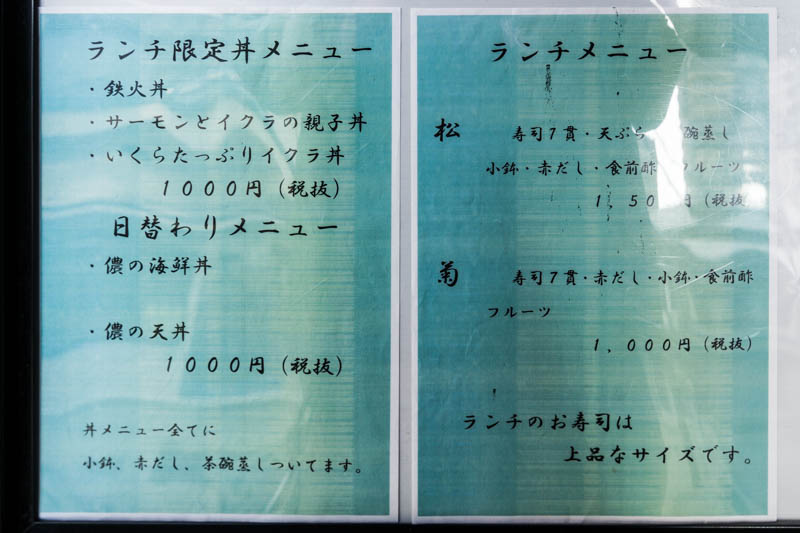 ランチ限定丼メニュー
・鉄火丼
・サーモンとイクラの親子丼
・いくらたっぷりイクラ丼
１０００円（税抜）
日替わりメニュー
・儂の海鮮丼
・儂の天丼
１０００円（税抜）
丼メニュー全てに
小鉢、赤だし、茶碗蒸しついてます。
ランチメニュー
松 寿司７貫・天ぷら 碗蒸し
小鉢・赤だし・食前酢 フルーツ
１，５０ 円（税抜）
菊 寿司７貫・赤だし・小鉢・食前酢
フルーツ
１，０００円（税抜）
ランチのお寿司は
上品なサイズです。